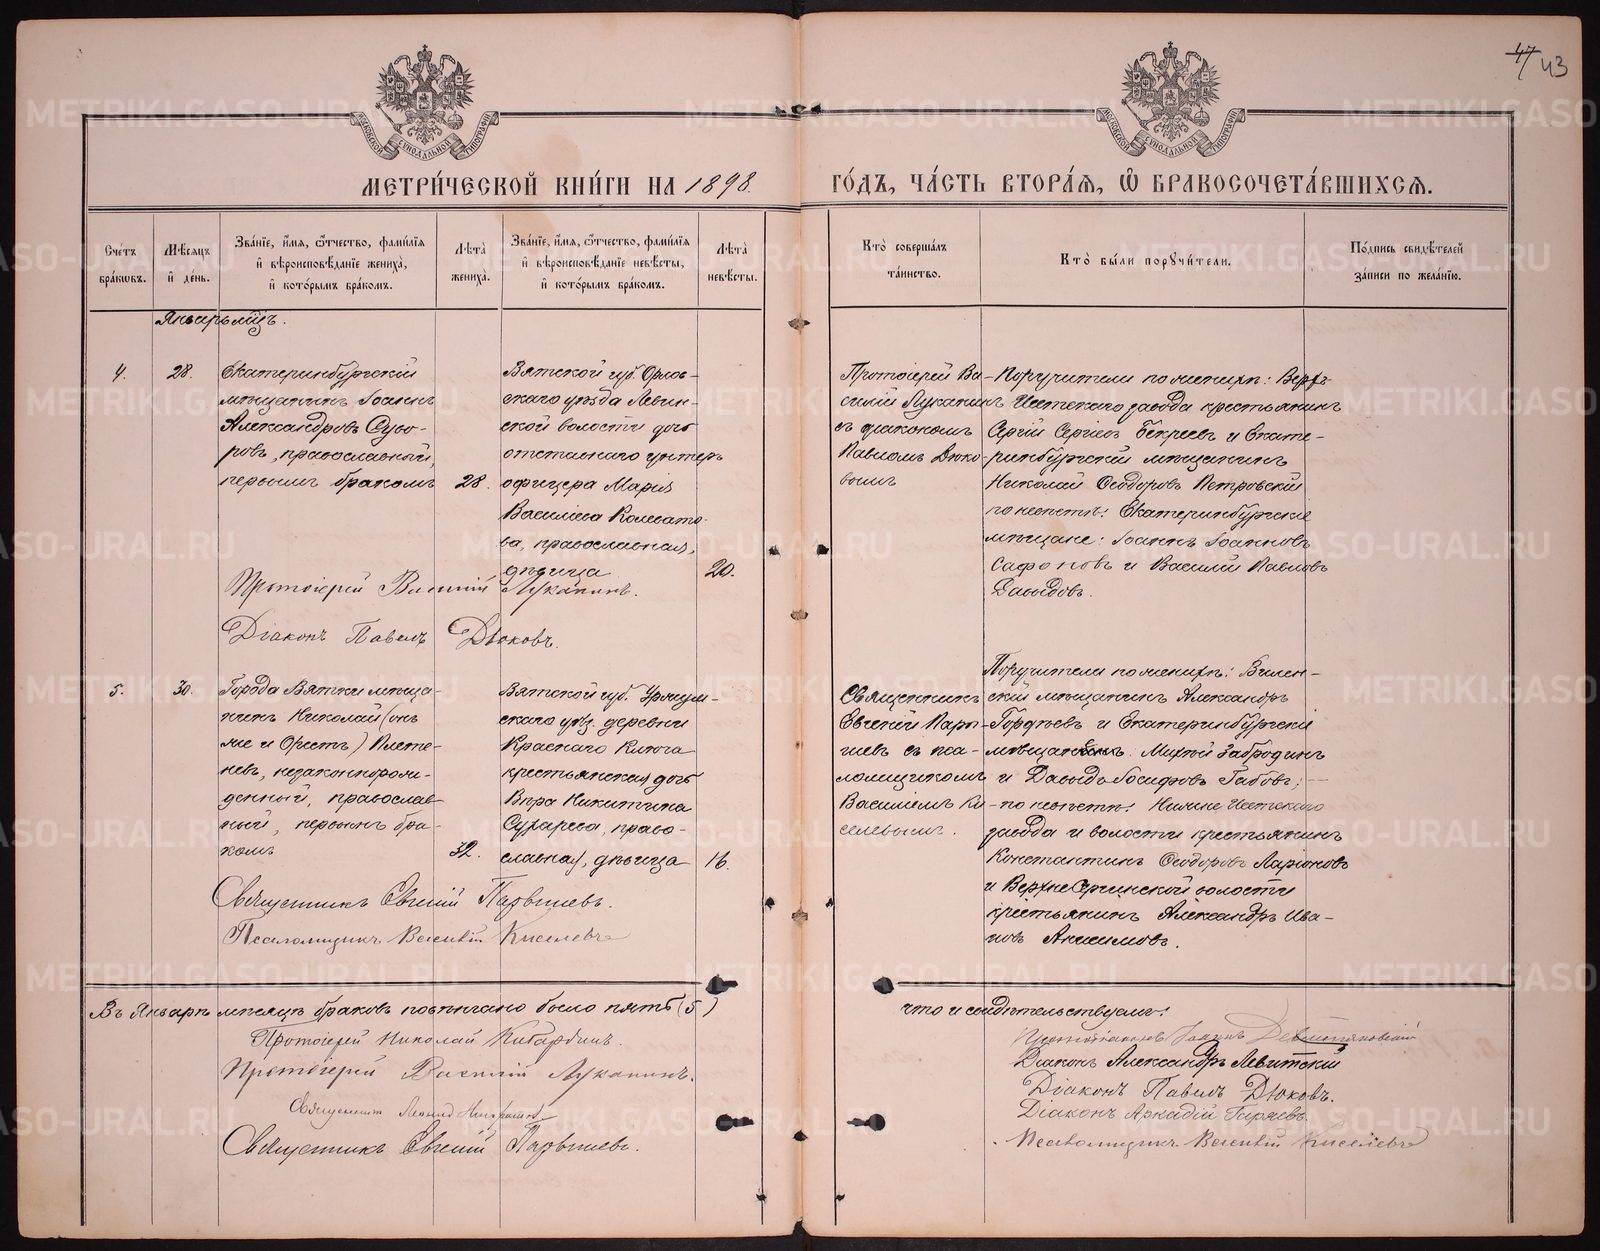 47 43
МЕТРИ́ЧЕСКОЙ КНИ́ГИ НА 1898
ГО́ДЪ, ЧА́СТЬ ВТОРА́Я, Ѿ БРАКОСОЧЕТА́ВШИХСЯ.
Сче́тъ бра́кωвъ.
Мѣ́сяцъ и де́нь.
Зва́нїе, и́мя, ѻ́тчество, фами́лїя и вѣроисповѣ́данїе жениха̀, и кото́рымъ бра́комъ.
Лѣта̀ жениха̀.
Зва́нїе, и́мя, ѻ́тчество, фами́лїя и вѣроисповѣ́данїе невѣ́сты, и кото́рымъ бра́комъ.
Лѣта̀ невѣ́сты.
Кто̀ соверша́лъ та́инство.
Кто̀ бы́ли порꙋчи́тели.
По́дпись свидѣ́телей за́писи по жела́нїю.
Январь мцъ.
4.
28.
Екатеринбургскій
мѣщанинъ Іоаннъ
Александровъ Суво-
ровъ, православный,
первымъ бракомъ
28.
Вятской губ. Орлов-
скаго уѣзда Левин-
ской волости дочь
отставнаго унтеръ
офицера Марія
Василіева Колевато-
ва, православная,
дѣвица
20.
Протоіерей Ва-
силій Луканинъ
съ діакономъ
Павломъ Дюко-
вымъ
Поручители по женихѣ: Верхъ
Исетскаго завода крестьянинъ
Сергій Сергіевъ Бекреевъ и Екате-
ринбургскій мѣщанинъ
Николай Ѳеодоровъ Петровскій
по невѣстѣ: Екатеринбургскіе
мѣщане: Іоаннъ Іоанновъ
Сафоновъ и Василій Павловъ
Давыдовъ.
Протоіерей Василій Луканинъ.
Діаконъ Павелъ Дюковъ.
5.
30.
Города Вятки мѣща-
нинъ Николай (онъ
же и Орестъ) Плете-
невъ, незаконнорож-
денный, православ-
ный, первымъ бра-
комъ
32.
Вятской губ. Уржум-
скаго уѣз. деревни
Краснаго Ключа
крестьянская дочь
Вѣра Никитина
Сударева, право-
славная, дѣвица
16.
Священникъ
Евгеній Пары-
шевъ съ пса-
ломщикомъ
Василіемъ Ки-
селевымъ.
Поручители по женихѣ: Вилен-
скій мѣщанинъ Александръ
Гордѣевъ и Екатеринбургскіе
Забродинъ
и Давыдъ Іосифовъ Габовъ;
по невѣстѣ: Нижне Исетскаго
завода и волости крестьянинъ
Константинъ Ѳеодоровъ Ларіоновъ
и Верхне Сергинской волости
крестьянинъ Александръ Ива-
новъ Анисимовъ.
Священникъ Евгеній Парышевъ.
Псаломщикъ Василій Киселевъ
Въ Январѣ мѣсяцѣ браковъ повѣнчано было пять (5)
что и свидѣтельствуемъ:
Протоіерей Николай
Протоіерей Василій Луканинъ.
Священникъ Леонид
Священникъ Евгеній Парышевъ.
Протодіаконъ Іоаннъ
Діаконъ Александръ Левитскій
Діаконъ Павелъ Дюковъ.
Діаконъ Аркадій Гиряевъ.
Псаломщикъ Василій Киселевъ
METRIKI.GASO-URAL.RU